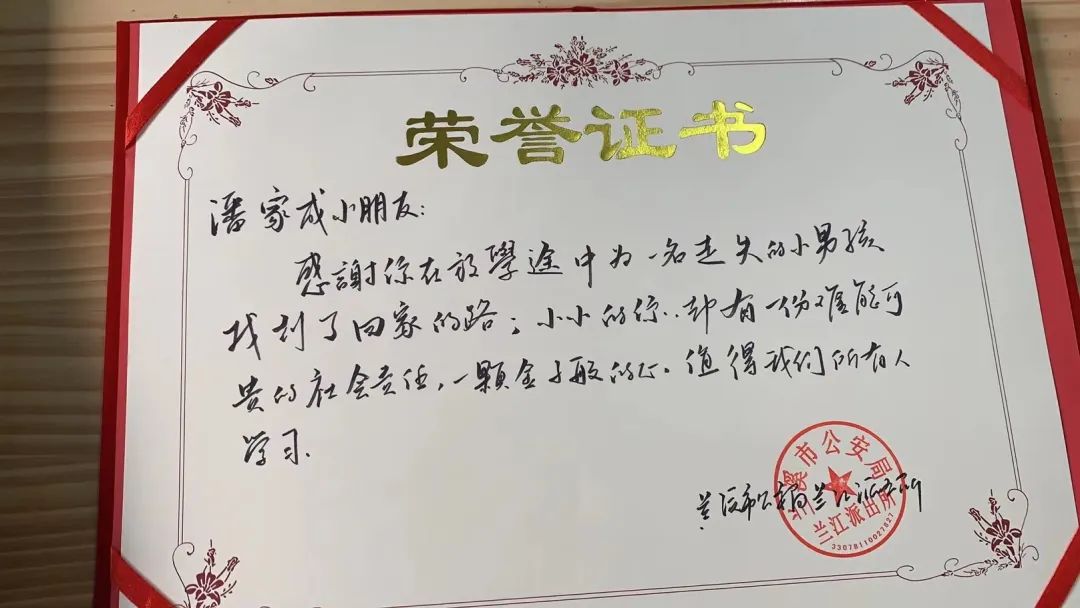 荣誉证书
潘家成小朋友:
感謝你在放學途中为一名走失的小男孩
找到了回家的路；小小的你，却有一份难能可
贵的社会责任，一颗金子般的心。值得我们所有人
学习.
兰溪市公安局兰江派出所
兰溪市公安局
兰江派出所
33078110027827